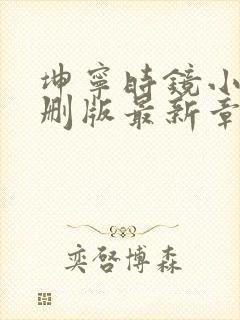 坤寧時鏡小
删版最新章
奕啓博森